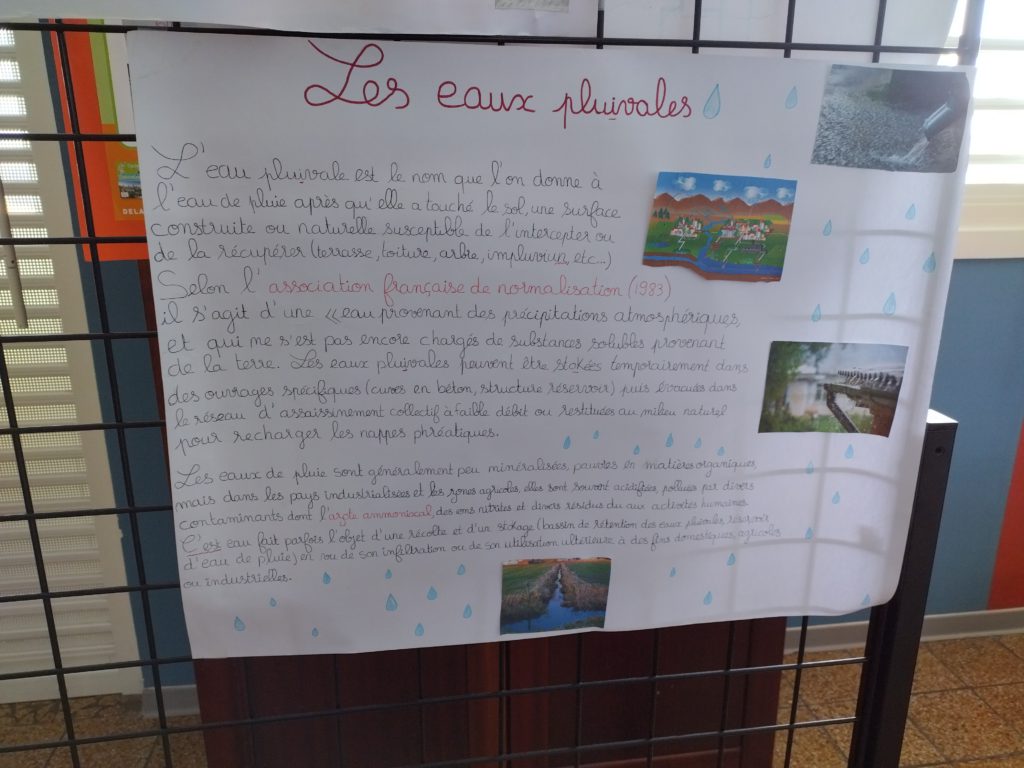 Les eaux pluivales
L'eau pluivale est le nom que l'on donne à
l'eau de pluie après qu'elle a touché le sol, une surface
construite ou naturelle susceptible de l'intercepter ou
de la récupérer (terrasse, toiture, arbre, impluviun, etc...)
Selon l'association française de normalisation (1983)
il s'agit d'une «eau provenant des précipitations atmosphériques,
et qui ne s'est pas encore chargés de substances solubles provenant
de la terre. Les eaux pluivales peuvent être stokées temporairement dans
des ouvrages spécifiques (cuves en béton, structure réservoir) puis évacuées dans
le réseau d'assaissinement collectif à faible débit ou restituées au milieu naturel
pour recharger les nappes phréatiques.
Les eaux de pluie sont généralement peu minéralisées, pauvres en matières organiques,
mais dans les pays industrialisées et les zones agricoles, elles sont souvent acidifiées, polluées par divers
contaminants dont l'azote ammoniacal, des ions nitrates et divers résidus du aux activités humaines.
C'est eau fait parfois l'objet d'une récolte et d'un stokage (bassin de rétention des eaux pluviales, réservoir
d'eau de pluie) en vu de son infiltration ou de son utilisation ultérieure à des fins domestiques, agricoles
ou industrielles.
DELA